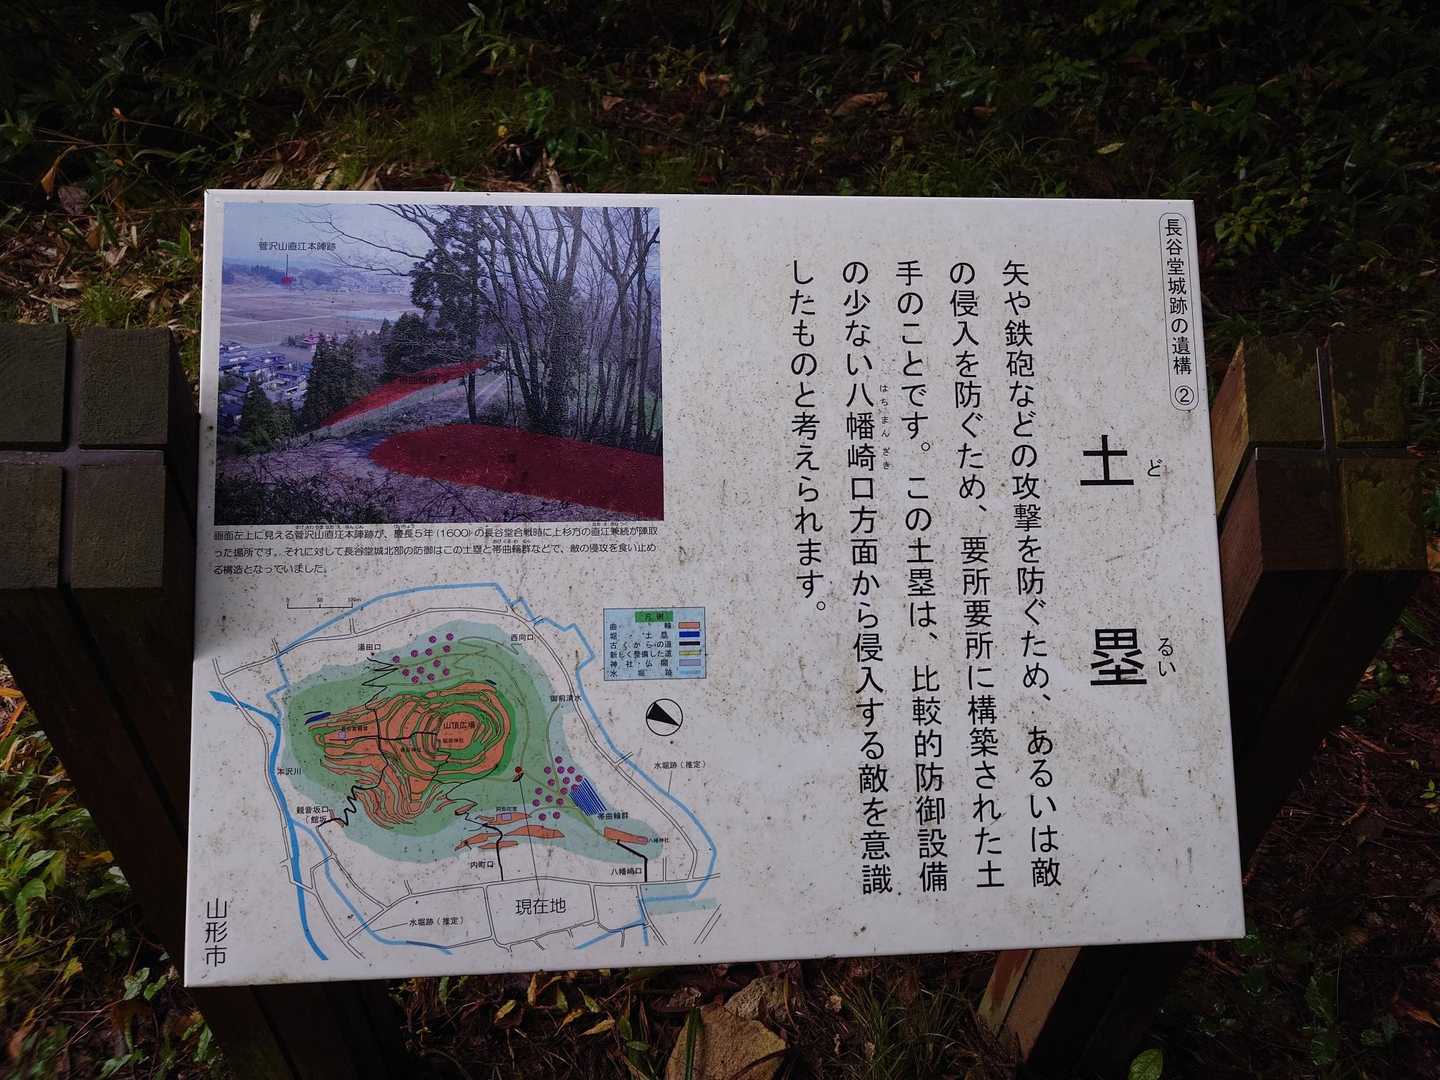 長谷堂城跡の遺構 ②
土塁
ど るい
矢や鉄砲などの攻撃を防ぐため、あるいは敵
の侵入を防ぐため、要所要所に構築された土
手のことです。この土塁は、比較的防御設備
の少ない八幡崎口方面から侵入する敵を意識
はちまんざき
したものと考えられます。
菅沢山直江本陣跡
帯曲輪群
画面左上に見える菅沢山直江本陣跡が、慶長5年(1600)の長谷堂合戦時に上杉方の直江兼続が陣取
った場所です。それに対して長谷堂城北部の防御はこの土塁と帯曲輪群などで、敵の侵攻を食い止め
る構造となっていました。
0 50 100m
凡例
曲輪
堀・土塁
古くからの道
新しく整備した道
神社・仏閣
水堀跡
湯田口
西向口
御前清水
山頂広場
本沢川
観音坂口
(館坂
水堀跡(推定)
帯曲輪群
八幡神社
内町口
八幡崎口
現在地
水堀跡(推定)
山形市